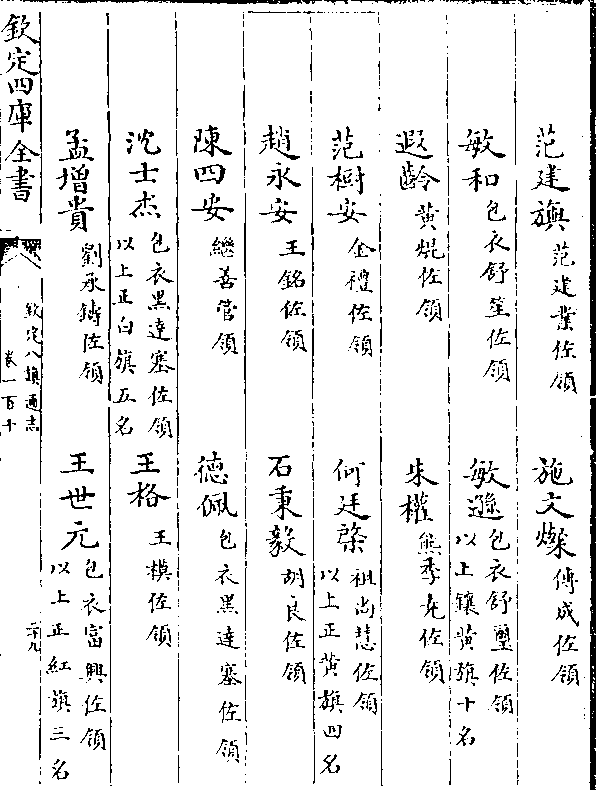 范建旟 范建業佐領 施文燦 傅成佐領
敏和 包衣舒筌佐領 敏遜 包衣舒璽佐領 以上鑲黄旗十名
遐齡 黄焜佐領 朱權 熊季充佐領
范樹安 金禮佐領 何廷棨 祖尚慧佐領 以上正黄旗四名
趙永安 王銘佐領 石秉毅 胡良佐領
陳四安 繼善管領 德佩 包衣黑達塞佐領
沈士杰 包衣黑達塞佐領 以上正白旗五名 王格 王模佐領
孟增貴 劉承鑄佐領 王世元 包衣富興佐領 以上正紅旗三名
欽定四庫全書 欽定八旗通志 卷一百十 二十九